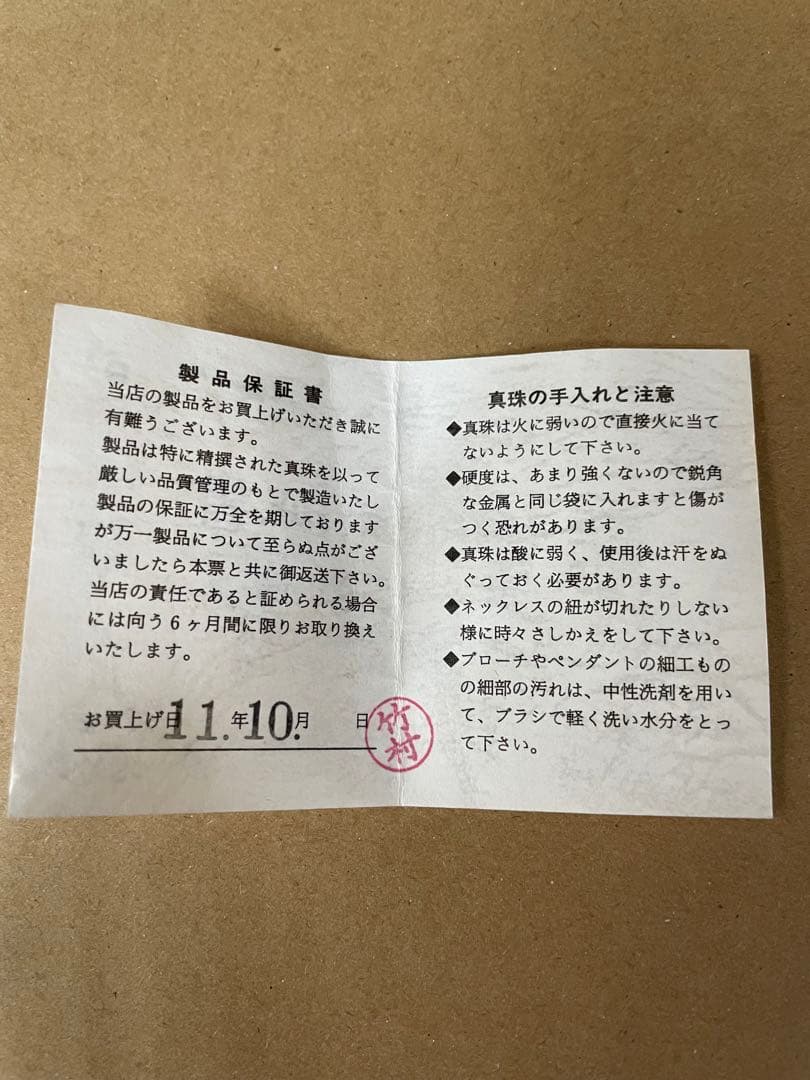 製品保証書
当店の製品をお買上げいただき誠に
有難うございます。
製品は特に精撰された真珠を以って
厳しい品質管理のもとで製造いたし
製品の保証に万全を期しております
が万一製品について至らぬ点がござ
いましたら本票と共に御返送下さい。
当店の責任であると証められる場合
には向う6ヶ月間に限りお取り換え
いたします。
お買上げ日 11.年10.月 日
竹村
真珠の手入れと注意
◆真珠は火に弱いので直接火に当て
ないようにして下さい。
◆硬度は、あまり強くないので鋭角
な金属と同じ袋に入れますと傷が
つく恐れがあります。
◆真珠は酸に弱く、使用後は汗をぬ
ぐっておく必要があります。
◆ネックレスの紐が切れたりしない
様に時々さしかえをして下さい。
◆ブローチやペンダントの細工もの
の細部の汚れは、中性洗剤を用い
て、ブラシで軽く洗い水分をとっ
て下さい。